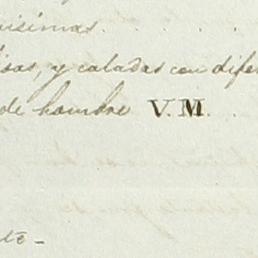 isimas.
isas, y caladas con difer
de hombre V.M.
te_